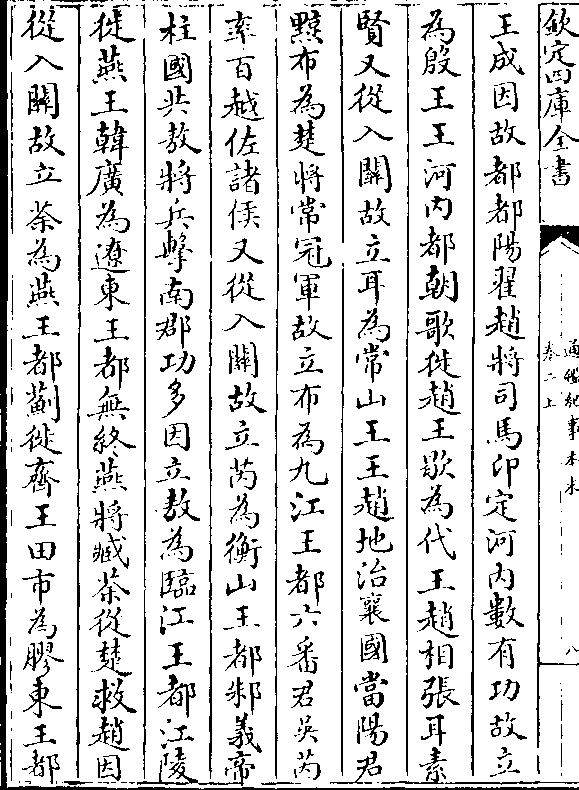 欽定四庫全書
通鑑紀事本末
卷二上
八
王成因故都都陽翟趙將司馬卬定河内數有功故立
為殷王王河内都朝歌徙趙王歇為代王趙相張耳素
賢又從入關故立耳為常山王王趙地治襄國當陽君
黥布為楚將常冠軍故立布為九江王都六番君吳芮
率百越佐諸侯又從入關故立芮為衡山王都邾義帝
柱國共敖將兵擊南郡功多因立敖為臨江王都江陵
徙燕王韓廣為遼東王都無終燕將臧荼從楚救趙因
從入關故立荼為燕王都薊徙齊王田市為膠東王都